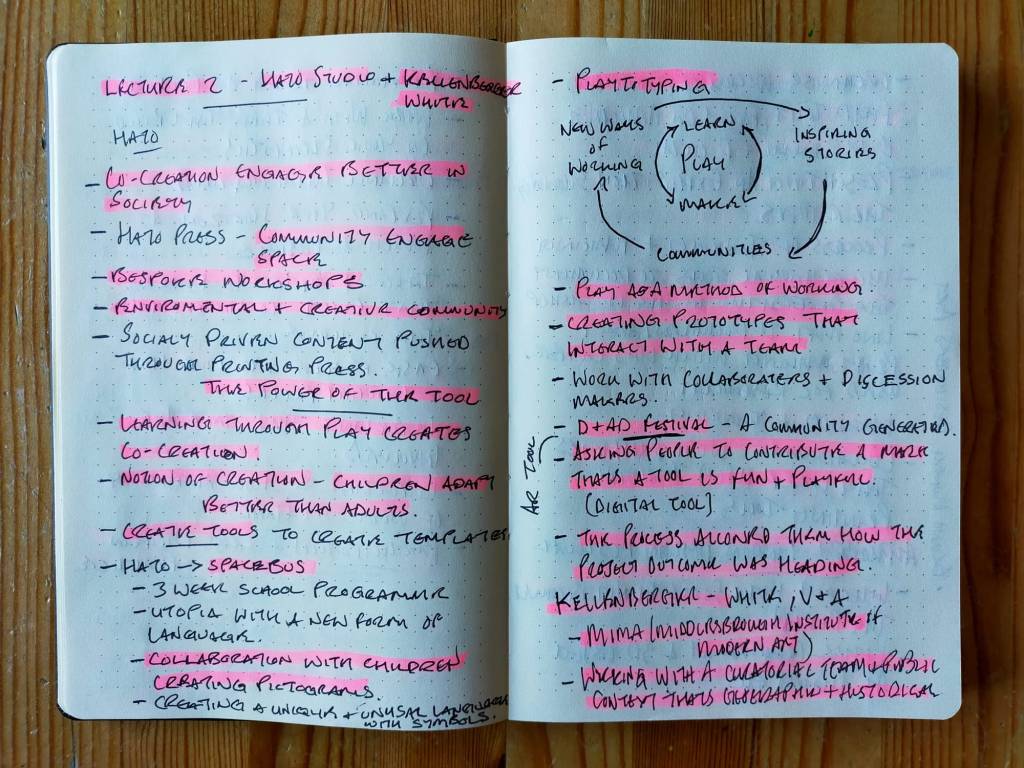 LECTURE 2 - HATO STUDIO + KELLENBERGER
WHITE
HATO
- CO-CREATION ENGAGES BETTER IN
SOCIETY
- HATO PRESS - COMMUNITY ENGAGE
SPACE
- BESPOKE WORKSHOPS
- ENVIROMENTAL + CREATIVE COMMUNITY
- SOCIALY DRIVEN CONTENT PUSHED
THROUGH PRINTING PRESS.
THE POWER OF THE TOOL
- LEARNING THROUGH PLAY CREATES
CO-CREATION
- NOTION OF CREATION - CHILDREN ADAPT
BETTER THAN ADULTS.
- CREATE TOOLS TO CREATE TEMPLATES
- HATO → SPACEBUS
- 3 WEEK SCHOOL PROGRAMME
- UTOPIA WITH A NEW FORM OF
LANGUAGE.
- COLLABORATION WITH CHILDREN
CREATING PICTOGRAMS.
- CREATING A UNIQUE + UNUSAL LANGUAGE
WITH SYMBOLS.
- PLAYTOTYPING
NEW WAYS
OF
WORKING
LEARN
PLAY
MAKE
INSPIRING
STORIES
COMMUNITIES
- PLAY AS A METHOD OF WORKING.
- CREATING PROTOTYPES THAT
INTERACT WITH A TEAM
- WORK WITH COLLABORATERS + DISCESSION
MAKERS.
- D+AD FESTIVAL - A COMMUNITY (GENERATIVE).
AR TOOL
- ASKING PEOPLE TO CONTRIBUTE A MARK
THATS A TOOL IS FUN + PLAYFUL.
[DIGITAL TOOL]
- THE PROCESS ALLOWED THEM HOW THE
PROJECT OUTCOME WAS HEADING.
KELLENBERGER - WHITE, V+A
- MIMA (MIDDLESBROUGH INSTITUTE OF
MODERN ART)
- WORKING WITH A CURATORIAL TEAM + PUBLIC
CONTEXT THATS GEOGRAPHIC + HISTORICAL